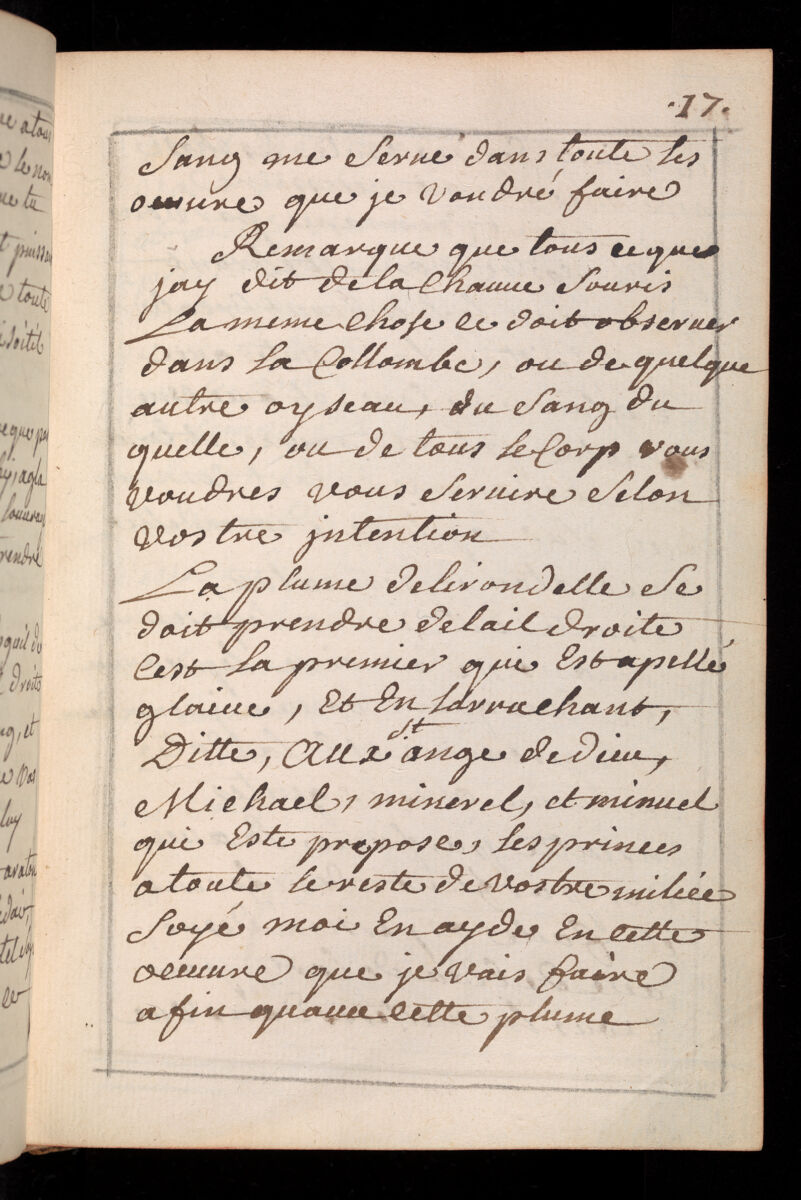 .17.
Sang me Serue dans toute les
oeuure que je voudré faire
Remarque que tous ce que
jay dit de la Chauue Souris
La meme Chose ce doit obseruer
dans La Collombe, ou de quelque
autre oyseau, du Sang du
quelle, ou de tous le Corp vous
voudres vous Seruire Selon
vostre jntention
La plume delirondelle Se
doit prendre delail droite
Cest La premier qui Est apellé
glaiue, Et En Larrachant,
Ditte, Aux st ange de dieu,
Michael, minerel, et minuel
qui Este propose, les princes
a toute le reste de vostre milice
Soyé moi En ayde En cette
oeuure que je vais faire
afin quaue cette plume